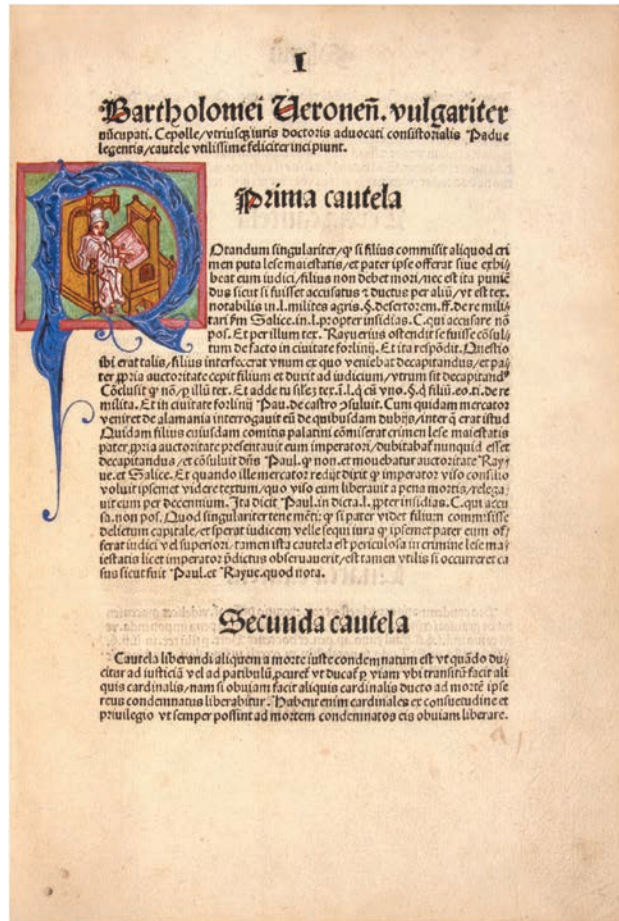 I
Bartholomei Ueroneñ. vulgariter
nũcupati. Cepolle/vtriusqȝ iuris doctoris aduocati consistorialis Padue
legentis/cautele vtilissime feliciter incipiunt.
Prima cautela
Notandum singulariter/ꝙ si filius commisit aliquod cri
men puta lese maiestatis/et pater ipse offerat siue exhi⸗
beat eum iudici/filius non debet mori/nec est ita puniẽ
dus sicut si fuisset accusatus ⁊ ductus per aliũ/vt est tex.
notabilis in.l.milites agris.§.desertorem.ff.de re mili⸗
tari ẝm Salice.in.l.propter insidias.C.qui accusare nõ
pos. Et per illum tex. Rayuerius ostendit se fuisse cõsul⸗
tum de facto in ciuitate forlinij. Et ita respõdit. Questio
ibi erat talis/filius interfecerat vnum ex quo veniebat decapitandus/et pa⸗
ter ꝓpria auctoritate cepit filium et duxit ad iudicium/vtrum sit decapitandꝰ
Cõclusit ꝙ nõ/ꝑ illũ tex. Et adde tu silez tex.ĩ.l.q̃ cũ vno.§.q̃ filiũ.eo.ti.de re
milita. Et in ciuitate forlinij Pau. de castro ↄsuluit. Cum quidam mercator
veniret de alamania interrogauit eũ de quibusdam dubijs/inter q̃ erat istud
Quidam filius cuiusdam comitis palatini cõmiserat crimen lese maiestatis
pater ꝓpria auctoritate presentauit eum imperatori/dubitabat̃ nunquid esset
decapitandus/et cõsuluit dñs Paul. ꝙ non. et mouebatur auctoritate Ray⸗
ue. et Salice. Et quando ille mercator redijt dixit ꝙ imperator viso consilio
voluit ipsemet videre textum/quo viso eum liberauit a pena mortis/relega⸗
uit eum per decennium. Ita dicit Paul. in dicta.l.ꝓpter insidias.C.qui accu
sa.non pos. Quod singulariter tene mẽti: ꝙ si pater videt filium commisisse
delictum capitale/et sperat iudicem velle sequi iura ꝙ ipsemet pater eum of⸗
ferat iudici vel superiori/tamen ista cautela est periculosa in crimine lese ma⸗
iestatis licet imperator p̃dictus obseruauerit/est tamen vtilis si occurreret ca
sus sicut fuit Paul. et Rayue. quod nota.
Secunda cautela
Cautela liberandi aliquem a morte iuste condemnatum est vt quãdo du⸗
citur ad iusticiã vel ad patibulũ/ꝓcuret̃ vt ducat̃ ꝑ viam vbi transitũ facit ali
quis cardinalis/nam si obuiam facit aliquis cardinalis ducto ad mortẽ ipse
reus condemnatus liberabitur. Habent enim cardinales ex consuetudine et
priuilegio vt semper possint ad mortem condemnatos eis obuiam liberare.